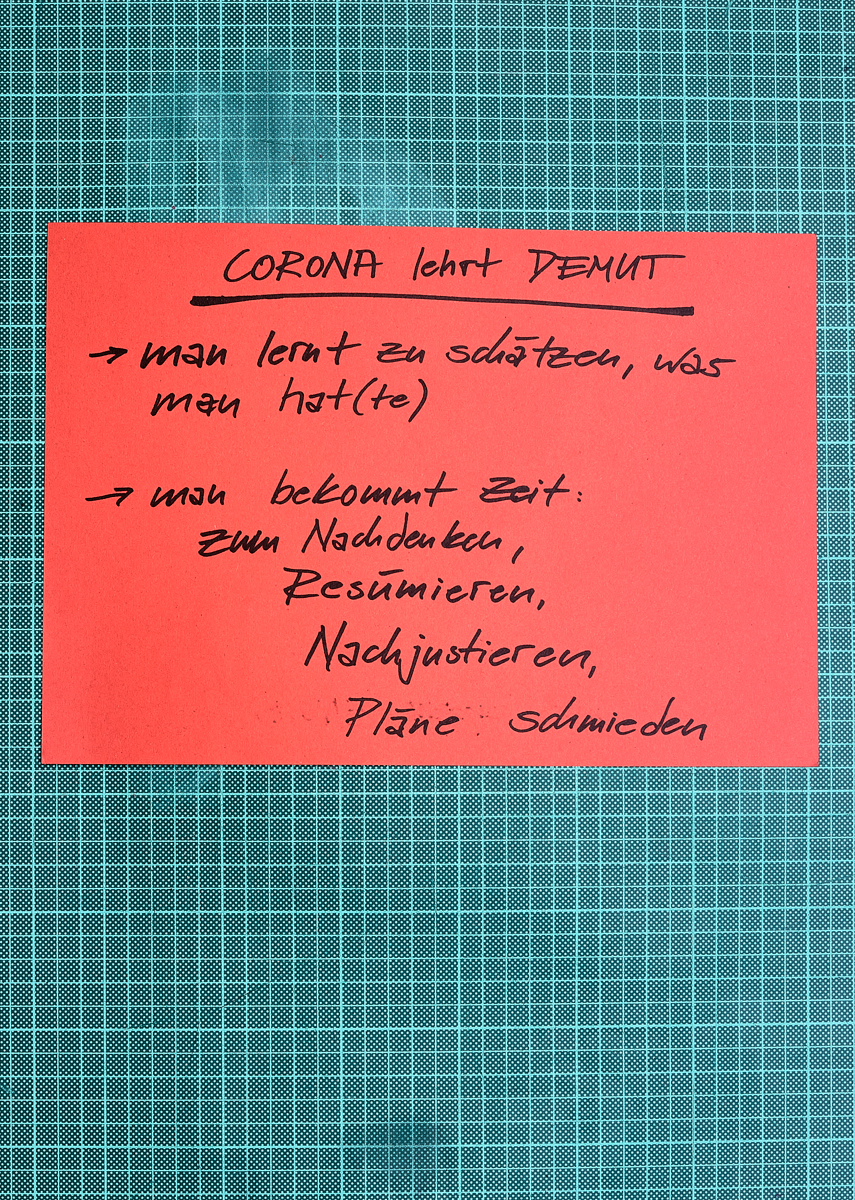 CORONA lehrt DEMUT
→ man lernt zu schätzen, was
man hat(te)
→ man bekommt Zeit:
zum Nachdenken,
Resümieren,
Nachjustieren,
Pläne schmieden